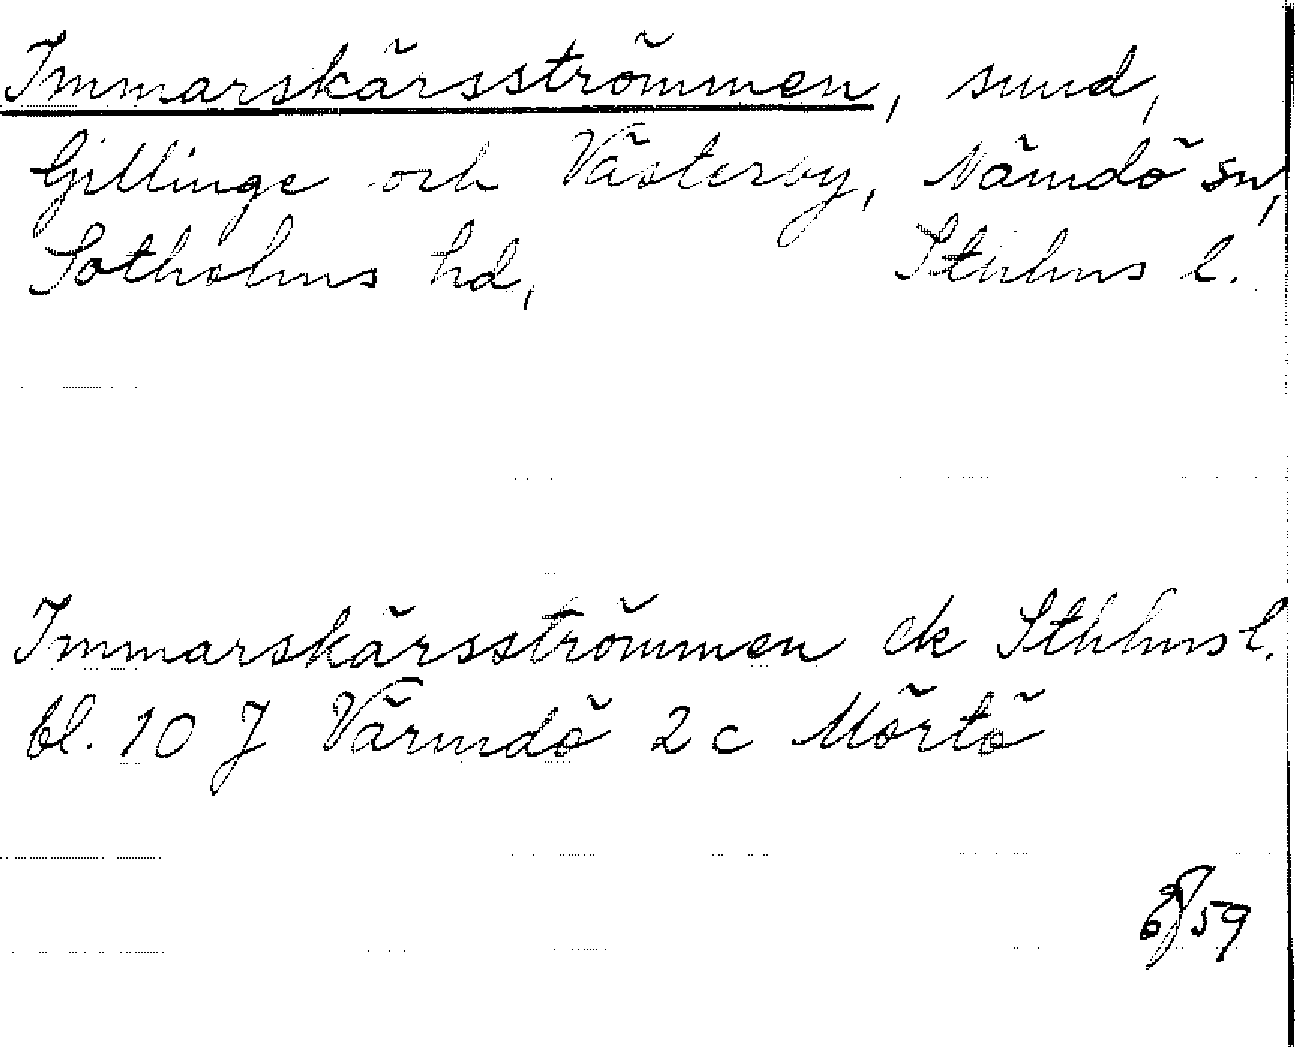 Immarskärsströmmen, sund,
Gillinge och Västerby, Nämdö sn,
Sotholms hd, Sthlms l.
Immarskärsströmmen ek Sthlms l.
bl. 10 J Värmdö 2c Mörtö
59